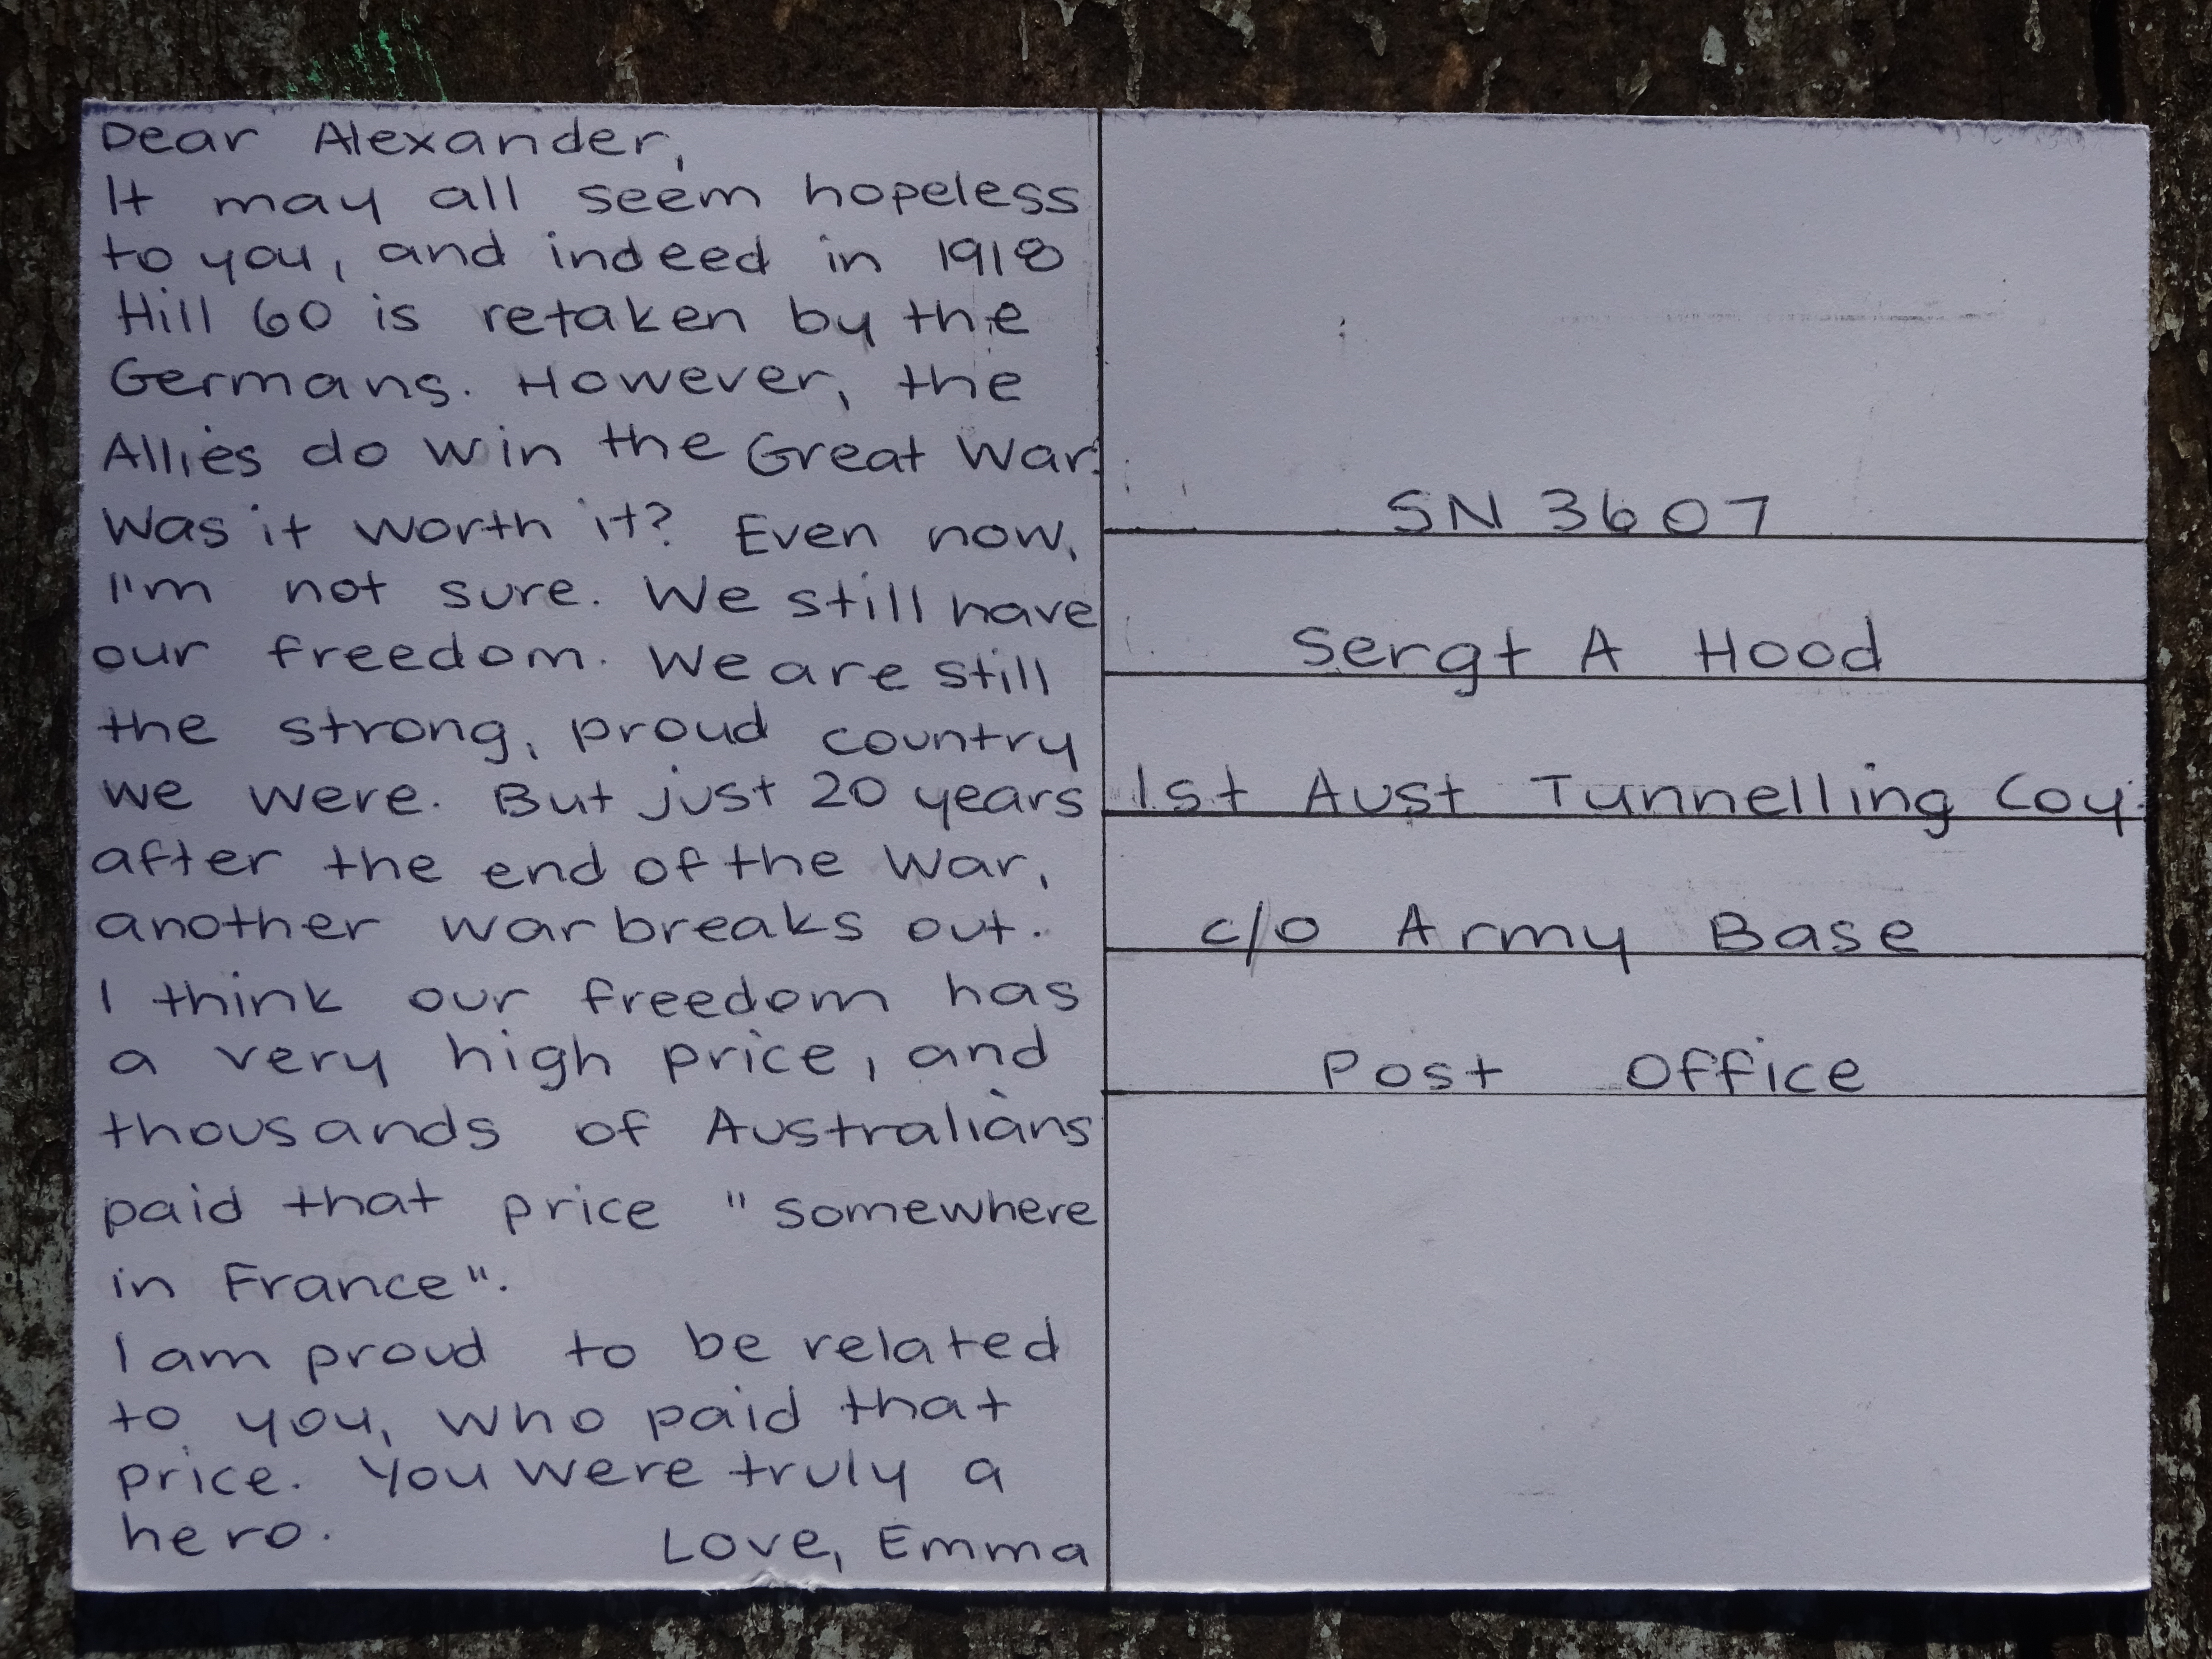 Dear Alexander,
It may all seem hopeless
to you, and indeed in 1918
Hill 60 is retaken by the
Germans. However, the
Allies do win the Great War.
Was it worth it? Even now,
I'm not sure. We still have
our freedom. We are still
the strong, proud country
we were. But just 20 years
after the end of the War,
another war breaks out.
I think our freedom has
a very high price, and
thousands of Australians
paid that price "somewhere
in France".
I am proud to be related
to you, who paid that
price. You were truly a
hero. Love, Emma
SN 3607
Sergt A Hood
1st Aust Tunnelling Coy.
c/o Army Base
Post Office